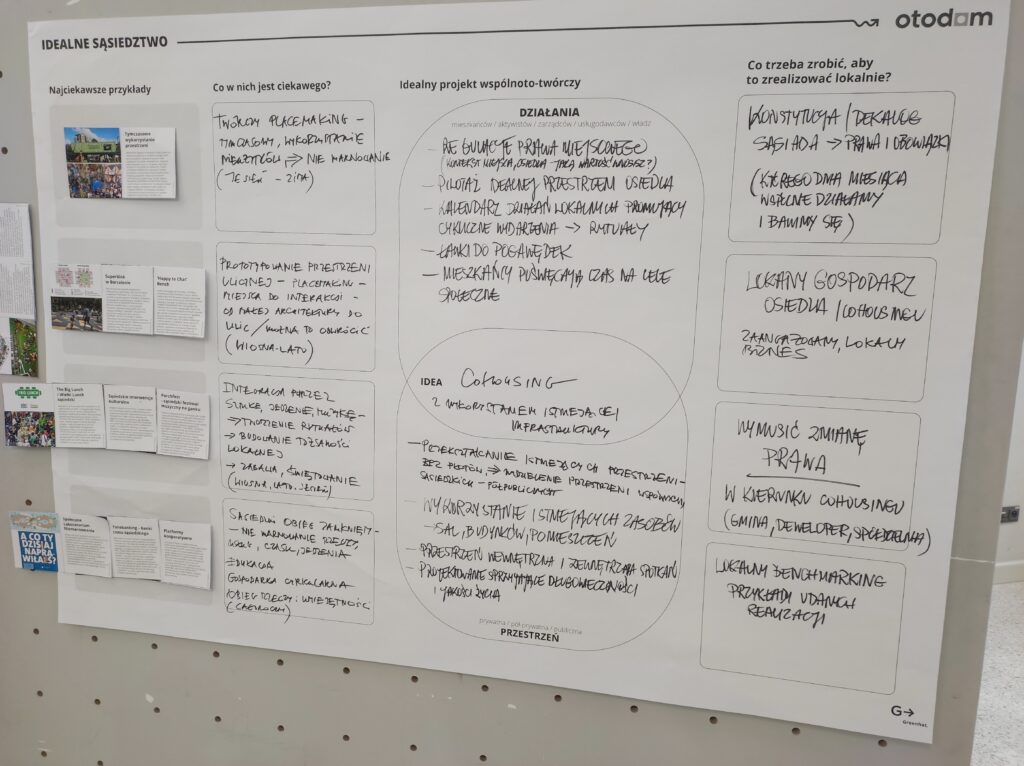 IDEALNE SĄSIEDZTWO
otodom
Najciekawsze przykłady
Tymczasowe
wykorzystanie
przestrzeni
Superblok
w Barcelonie
"Happy to Chat"
Bench
The Big Lunch
- Wielki Lunch
sąsiedzki
Sąsiedzkie interwencje
kulturalne
Porchfest
- sąsiedzki festiwal
muzyczny na ganku
A CO TY
DZISIAJ
NAPRA
WIŁAŚ?
Społeczne
Laboratorium
Niemarnowania
Timebanking - banki
czasu sąsiedzkiego
Platformy
Kooperatywne
Co w nich jest ciekawego?
TWÓRCZY PLACEMAKING -
TYMCZASOWY, WYKORZYSTANIE
NIEUŻYTKÓW => NIE MARNOWANIE
(JESIEŃ - ZIMA)
PROTOTYPOWANIE PRZESTRZENI
ULICZNEJ - PLACEMAKING -
MIEJSCA DO INTERAKCJI -
OD MAŁEJ ARCHITEKTURY DO
ULIC / MOŻNA TO ODWRÓCIĆ
(WIOSNA-LATO)
INTEGRACJA PRZEZ
SZTUKĘ, JEDZENIE, MUZYKĘ -
→ TWORZENIE RYTUAŁÓW
→ BUDOWANIE TOŻSAMOŚCI
LOKALNEJ
→ ZABAWA, ŚWIĘTOWANIE
(WIOSNA, LATO, JESIEŃ)
SĄSIEDZKI OBIEG ZAMKNIĘTY -
- NIE MARNOWANIE RZECZY,
CZASU, JEDZENIA
EDUKACJA
GOSPODARKA CYRKULARNA
OBIEG RZECZY I UMIEJĘTNOŚCI
(CAŁOROCZNY)
Idealny projekt wspólnoto-twórczy
DZIAŁANIA
mieszkańców / aktywistów / zarządców / usługodawców / władz
- REGULACJE PRAWA MIEJSCOWEGO
(KONTEKST MIEJSCA, OSIEDLA - JAKĄ WARTOŚĆ WNOSISZ?)
- PILOTAŻ IDEALNEJ PRZESTRZENI OSIEDLA
- KALENDARZ DZIAŁAŃ LOKALNYCH PROMUJĄCY
CYKLICZNE WYDARZENIA → RYTUAŁY
- ŁAWKI DO POGAWĘDEK
- MIESZKAŃCY POŚWIĘCAJĄ CZAS NA CELE
SPOŁECZNE
IDEA COHOUSING
Z WYKORZYSTANIEM ISTNIEJĄCEJ
INFRASTRUKTURY
- PRZEKSZTAŁCANIE ISTNIEJĄCYCH PRZESTRZENI -
BEZ PŁOTÓW, => PRZESTRZENI WSPÓLNYCH,
SĄSIEDZKICH - PÓŁPUBLICZNYCH
- WYKORZYSTANIE ISTNIEJĄCYCH ZASOBÓW
- SAL, BUDYNKÓW, POMIESZCZEŃ
- PRZESTRZEŃ WEWNĘTRZNA I ZEWNĘTRZNA SPOTKAŃ
- PROJEKTOWANIE SPRZYJAJĄCE DŁUGOWIECZNOŚCI
I JAKOŚCI ŻYCIA
prywatna / pół-prywatna / publiczna
PRZESTRZEŃ
Co trzeba zrobić, aby
to zrealizować lokalnie?
KONSTYTUCJA / DEKALOG
SĄSIADA → PRAWA I OBOWIĄZKI
(KTÓREGO DNIA MIESIĄCA
WSPÓLNIE DZIAŁAMY
I BAWIMY SIĘ)
LOKALNY GOSPODARZ
OSIEDLA / COHOUSINGU
ZAANGAŻOWANY, LOKALNY
BIZNES
WYMUSIĆ ZMIANĘ
PRAWA
W KIERUNKU COHOUSINGU
(GMINA, DEWELOPER, SPÓŁDZIELNIA)
LOKALNY BENCHMARKING
PRZYKŁADY UDANYCH
REALIZACJI
G→
Greenhat.